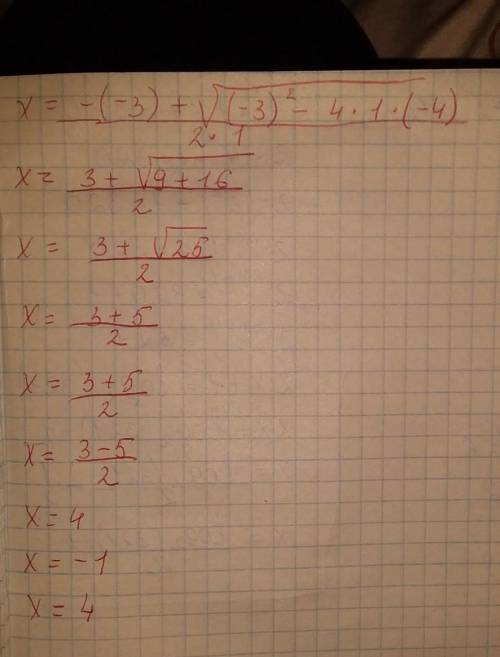 x = -(-3) + √(-3)² - 4·1·(-4) / 2·1
x = 3 + √9+16 / 2
x = 3 + √25 / 2
x = 3+5 / 2
x = 3+5 / 2
x = 3-5 / 2
x = 4
x = -1
x = 4